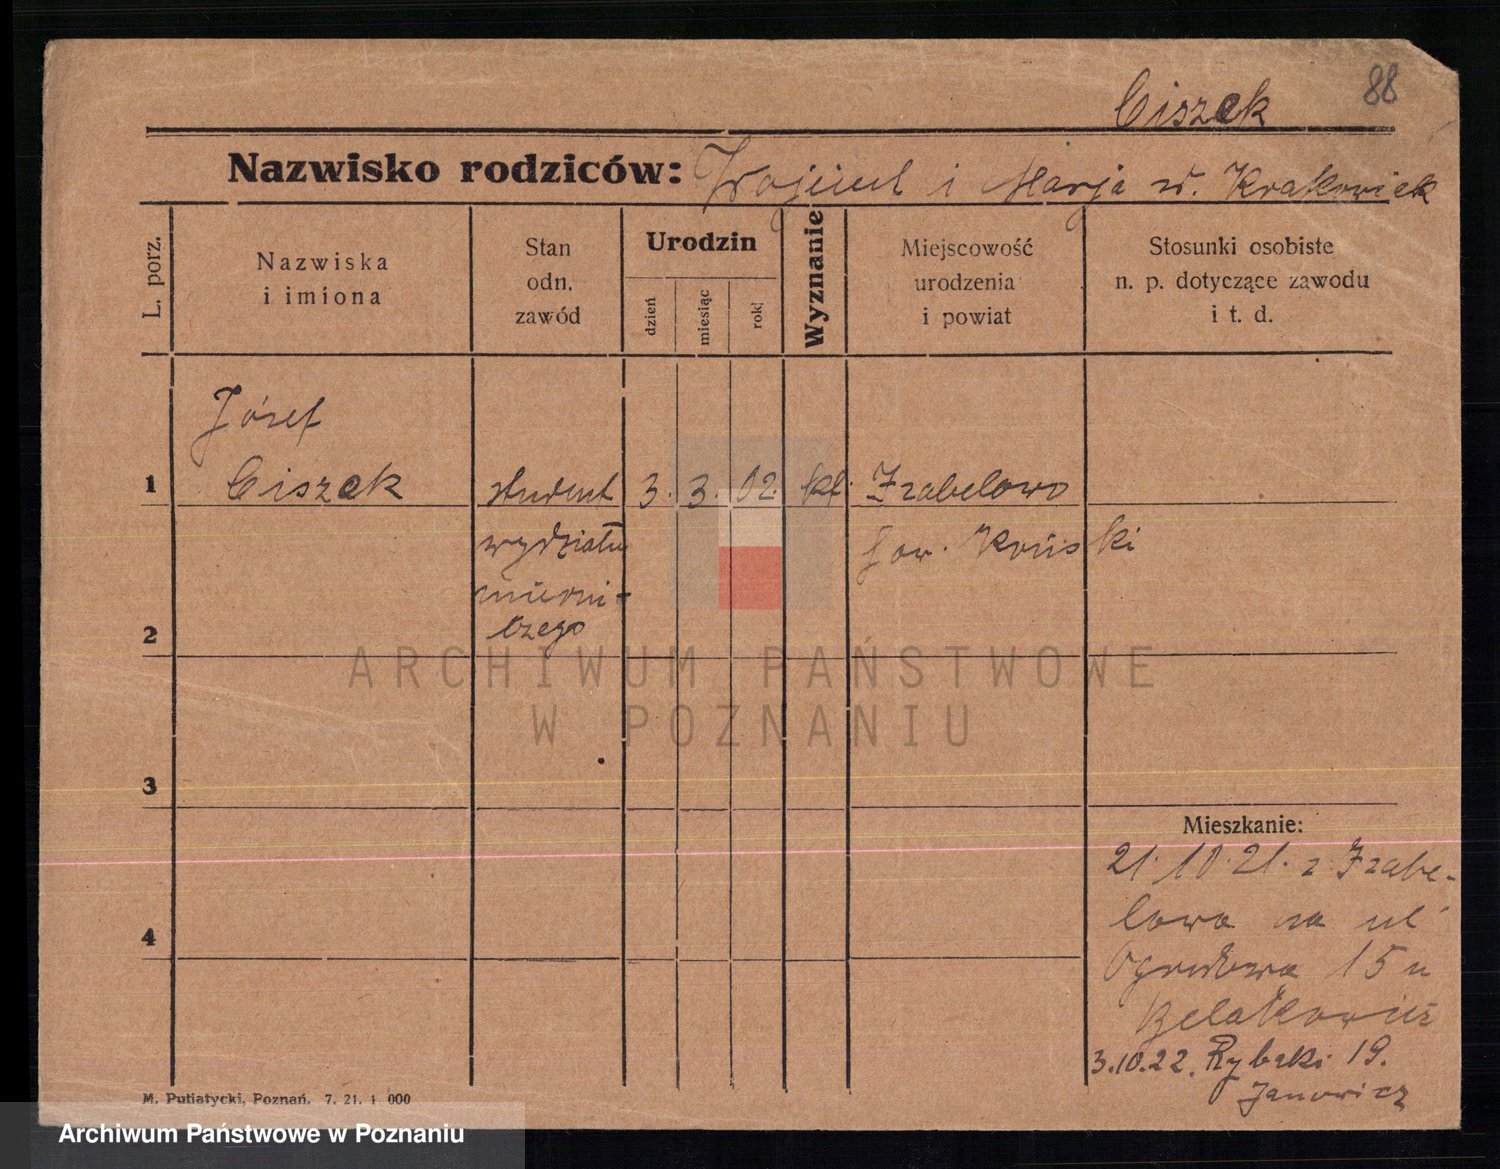 88
Ciszek
Nazwisko rodziców: Wojciech i Marja z d. Krakowiak
L. porz.
Nazwiska
i imiona
Stan
odn.
zawód
Urodzin
dzień
miesiąc
rok
Wyznanie
Miejscowość
urodzenia
i powiat
Stosunki osobiste
n. p. dotyczące zawodu
i t. d.
Józef
1 Ciszek student 3. 3. 02. kł. Izabelowo
wydziału pow. Koński
mierni-
2 czego
ARCHIWUM PAŃSTWOWE
W POZNANIU
3
Mieszkanie:
21.10.21. z Izabe-
lowa na ul
4
Ogrodowa 15 u
3.10.22. Rybaki 19.
Janowicz
M. Putiatycki, Poznań. 7. 21. 1 000
Archiwum Państwowe w Poznaniu